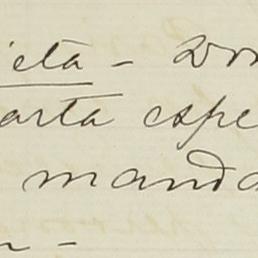 ieta - Don
arta espe
manda
n -